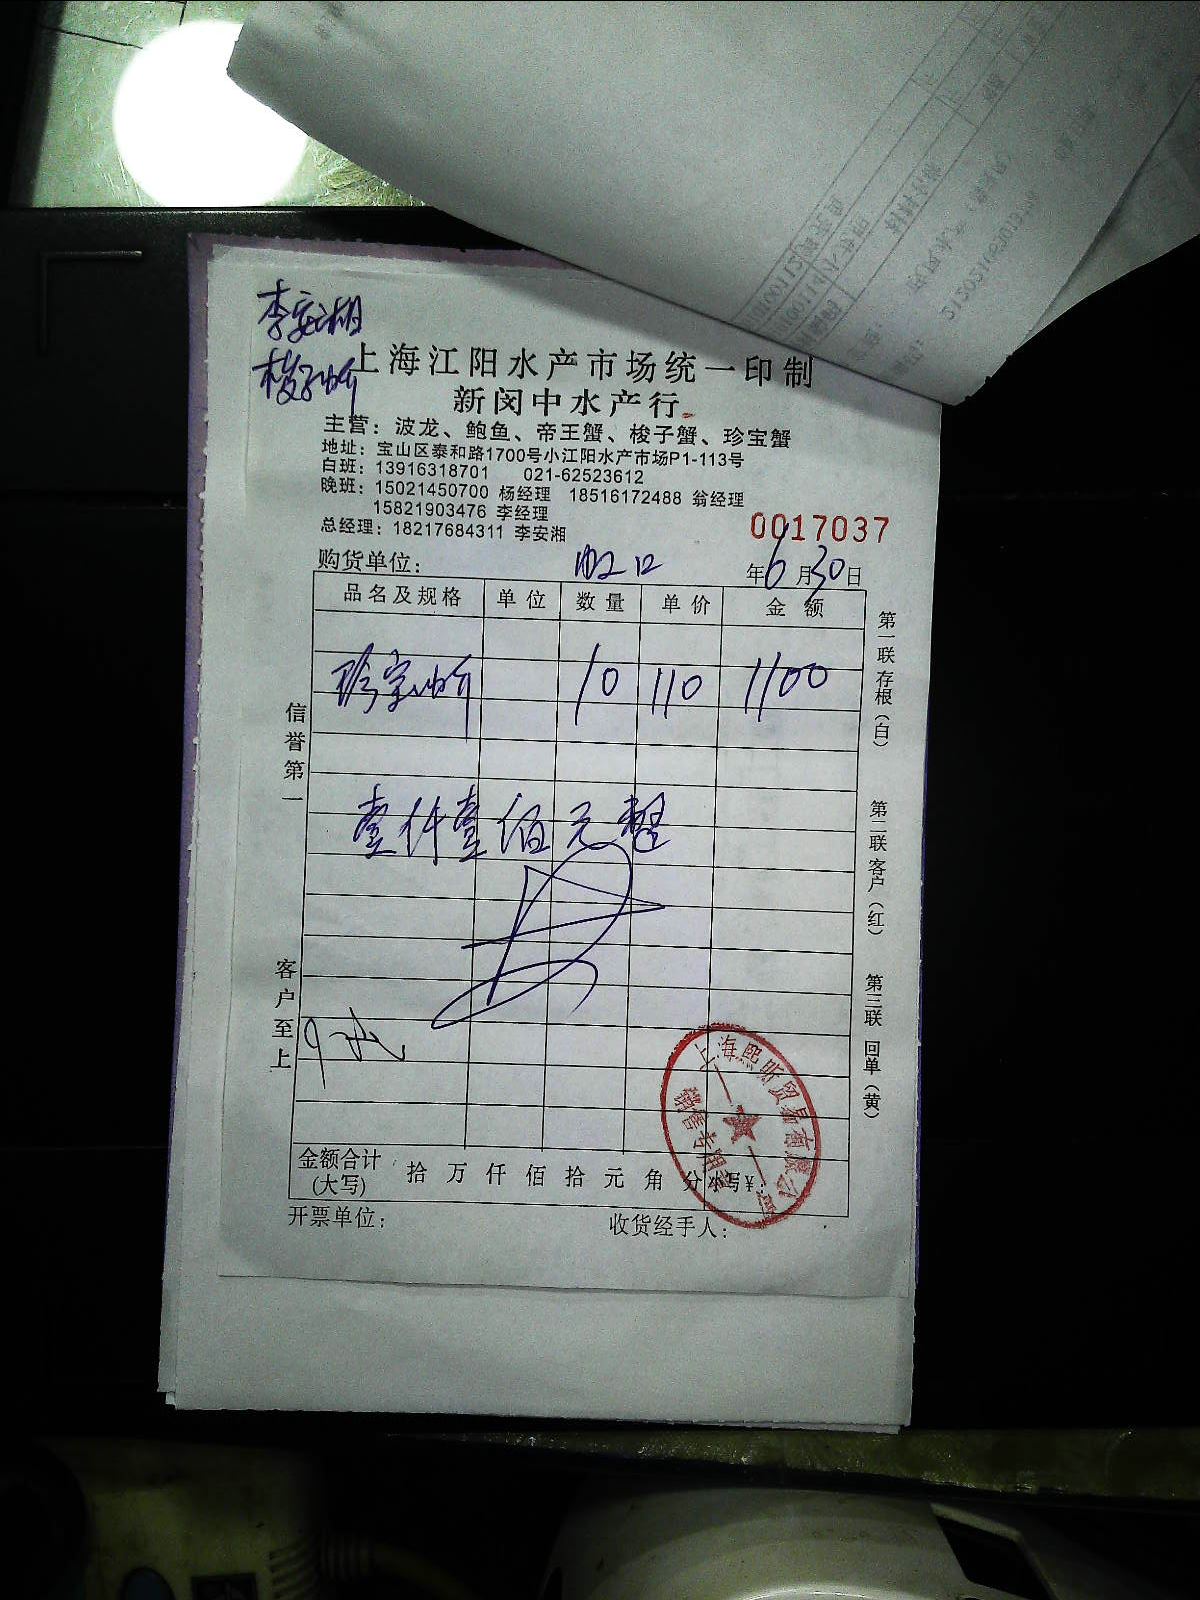 李安湘
梭子蚧
上海江阳水产市场统一印制
新闵中水产行
主营：波龙、鲍鱼、帝王蟹、梭子蟹、珍宝蟹
地址：宝山区泰和路1700号小江阳水产市场P1-113号
白班：13916318701 021-62523612
晚班：15021450700 杨经理 18516172488 翁经理
15821903476 李经理
总经理：18217684311 李安湘
0017037
购货单位： 年6月30日
品名及规格 单位 数量 单价 金额
珍宝蚧 10 110 1100
壹仟壹佰元整
信誉第一
客户至上
第一联存根（白）
第二联客户（红）
第三联回单（黄）
上海熙昕贸易有限公司
销售专用章
金额合计(大写) 拾万仟佰拾元角分 小写¥：
开票单位： 收货经手人：